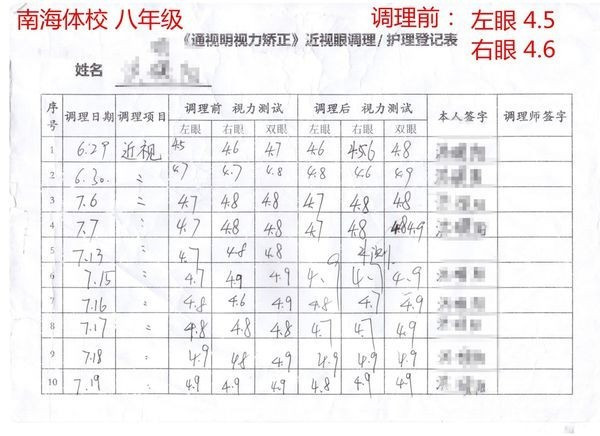 南海体校 八年级 调理前： 左眼 4.5
右眼 4.6
《通视明视力矫正》近视眼调理/护理登记表
姓名
序号 调理日期 调理项目 调理前 视力测试 调理后 视力测试 本人签字 调理师签字
左眼 右眼 双眼 左眼 右眼 双眼
1 6.29 近视 4.5 4.6 4.7 4.6 4.8
2 6.30. 〃 4.7 4.7 4.8 4.8 4.6 4.9
3 7.6 〃 4.7 4.8 4.8 4.7 4.8 4.8
4 7.7 〃 4.7 4.8 4.8 4.7 4.8 4.8 4.9
5 7.13 〃 4.7 4.8 4.8
6 7.15 〃 4.7 4.9 4.9 4.9
7 7.16 〃 4.8 4.6 4.9 4.8 4.7 4.9
8 7.17 〃 4.8 4.8 4.8 4.7 4.7 4.9
9 7.18 〃 4.9 4.8 4.9 4.9 4.9 4.9
10 7.19 〃 4.9 4.9 4.9 4.8 4.9 4.9